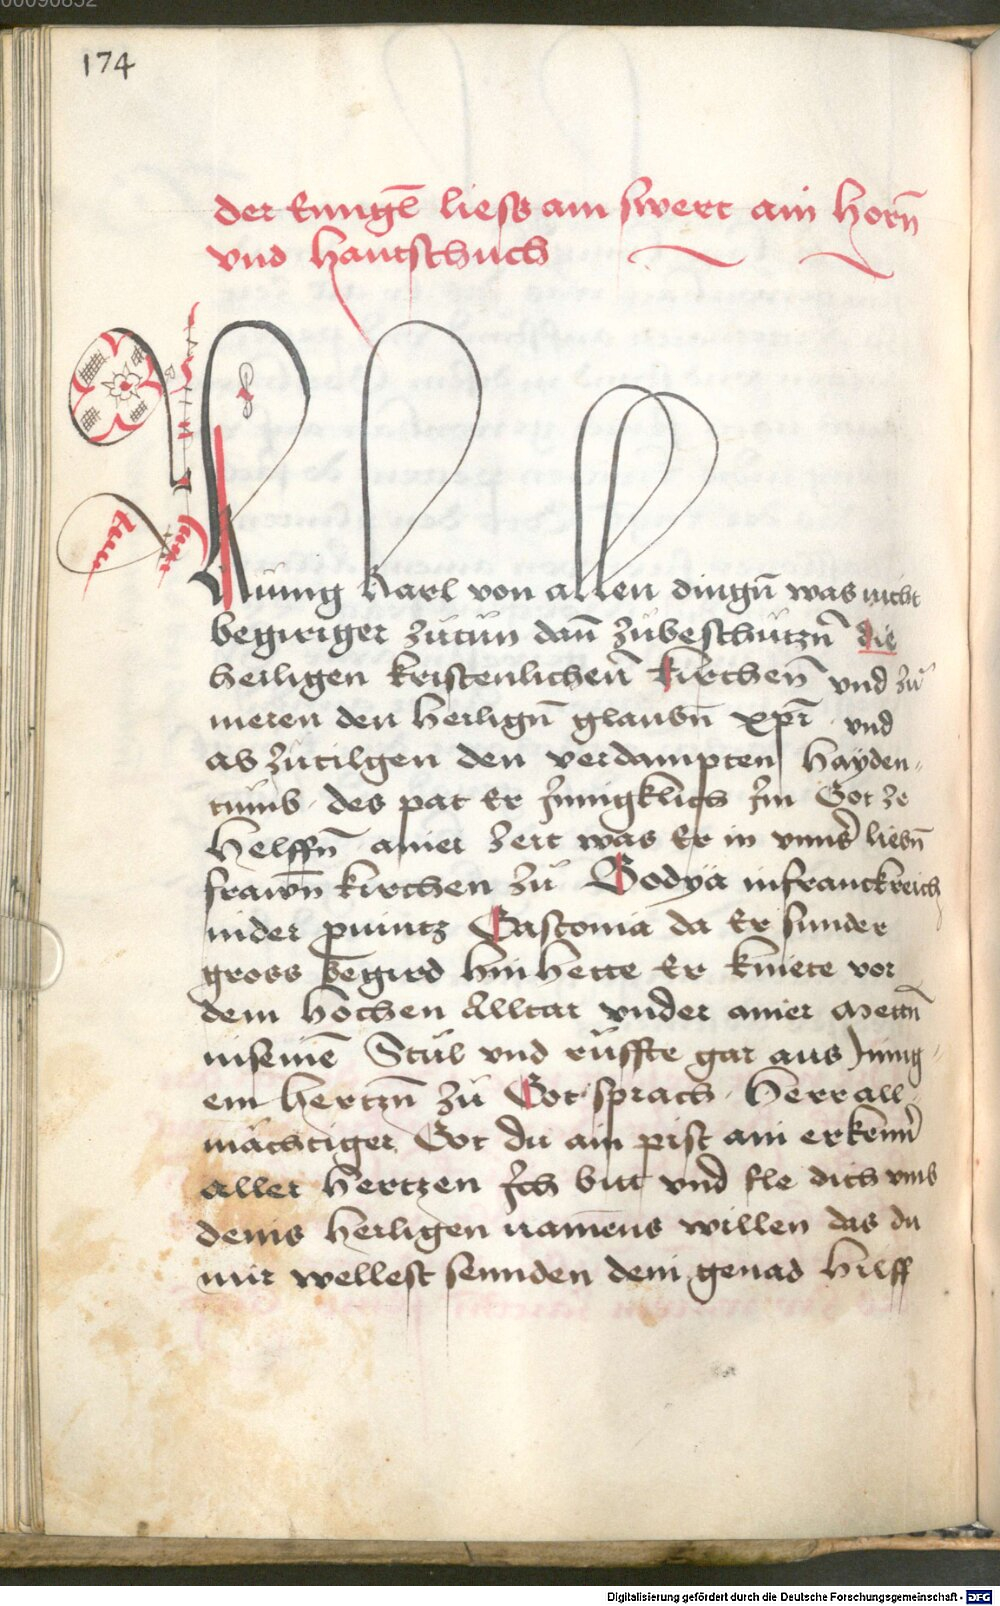 00090832
174
der Enngl̄ liess ain swert ain horn̄
vnd hantschuch
Küinig Karl von allen dingn̄ was nicht
begiriger zütün dan̄ zübeschützn̄ die
heiligen kristenlichen̄ kirchen̄ vnd zů
meren den heilign̄ glaubn̄ xpī · vnd
ab zütilgen den verdampten hayden„
tumb · des pat Er Jnnigklich Jm Got ze
helffn̄ ainer Zeit was Er in vnnsʼ liebn̄
frawn̄ kirchen zů Bodyä infranckreich
inder prouintz Gasconia da Er sunder
gross begird hin hette Er kniete vor
dem hochen Alltar vnder ainer Mettn̄
inseinē Stůl vnd rüffte gar aus Jnnig„
em hertzn̄ zů Got sprach · Herr all„
mächtiger Got du ain pist ain erkennʼ
aller hertzen Jch bitt vnd fle dich vmb
deins heiligen namēns willen das du
mir wellest sennden dein genad hilff
Digitalisierung gefördert durch die Deutsche Forschungsgemeinschaft - DFG